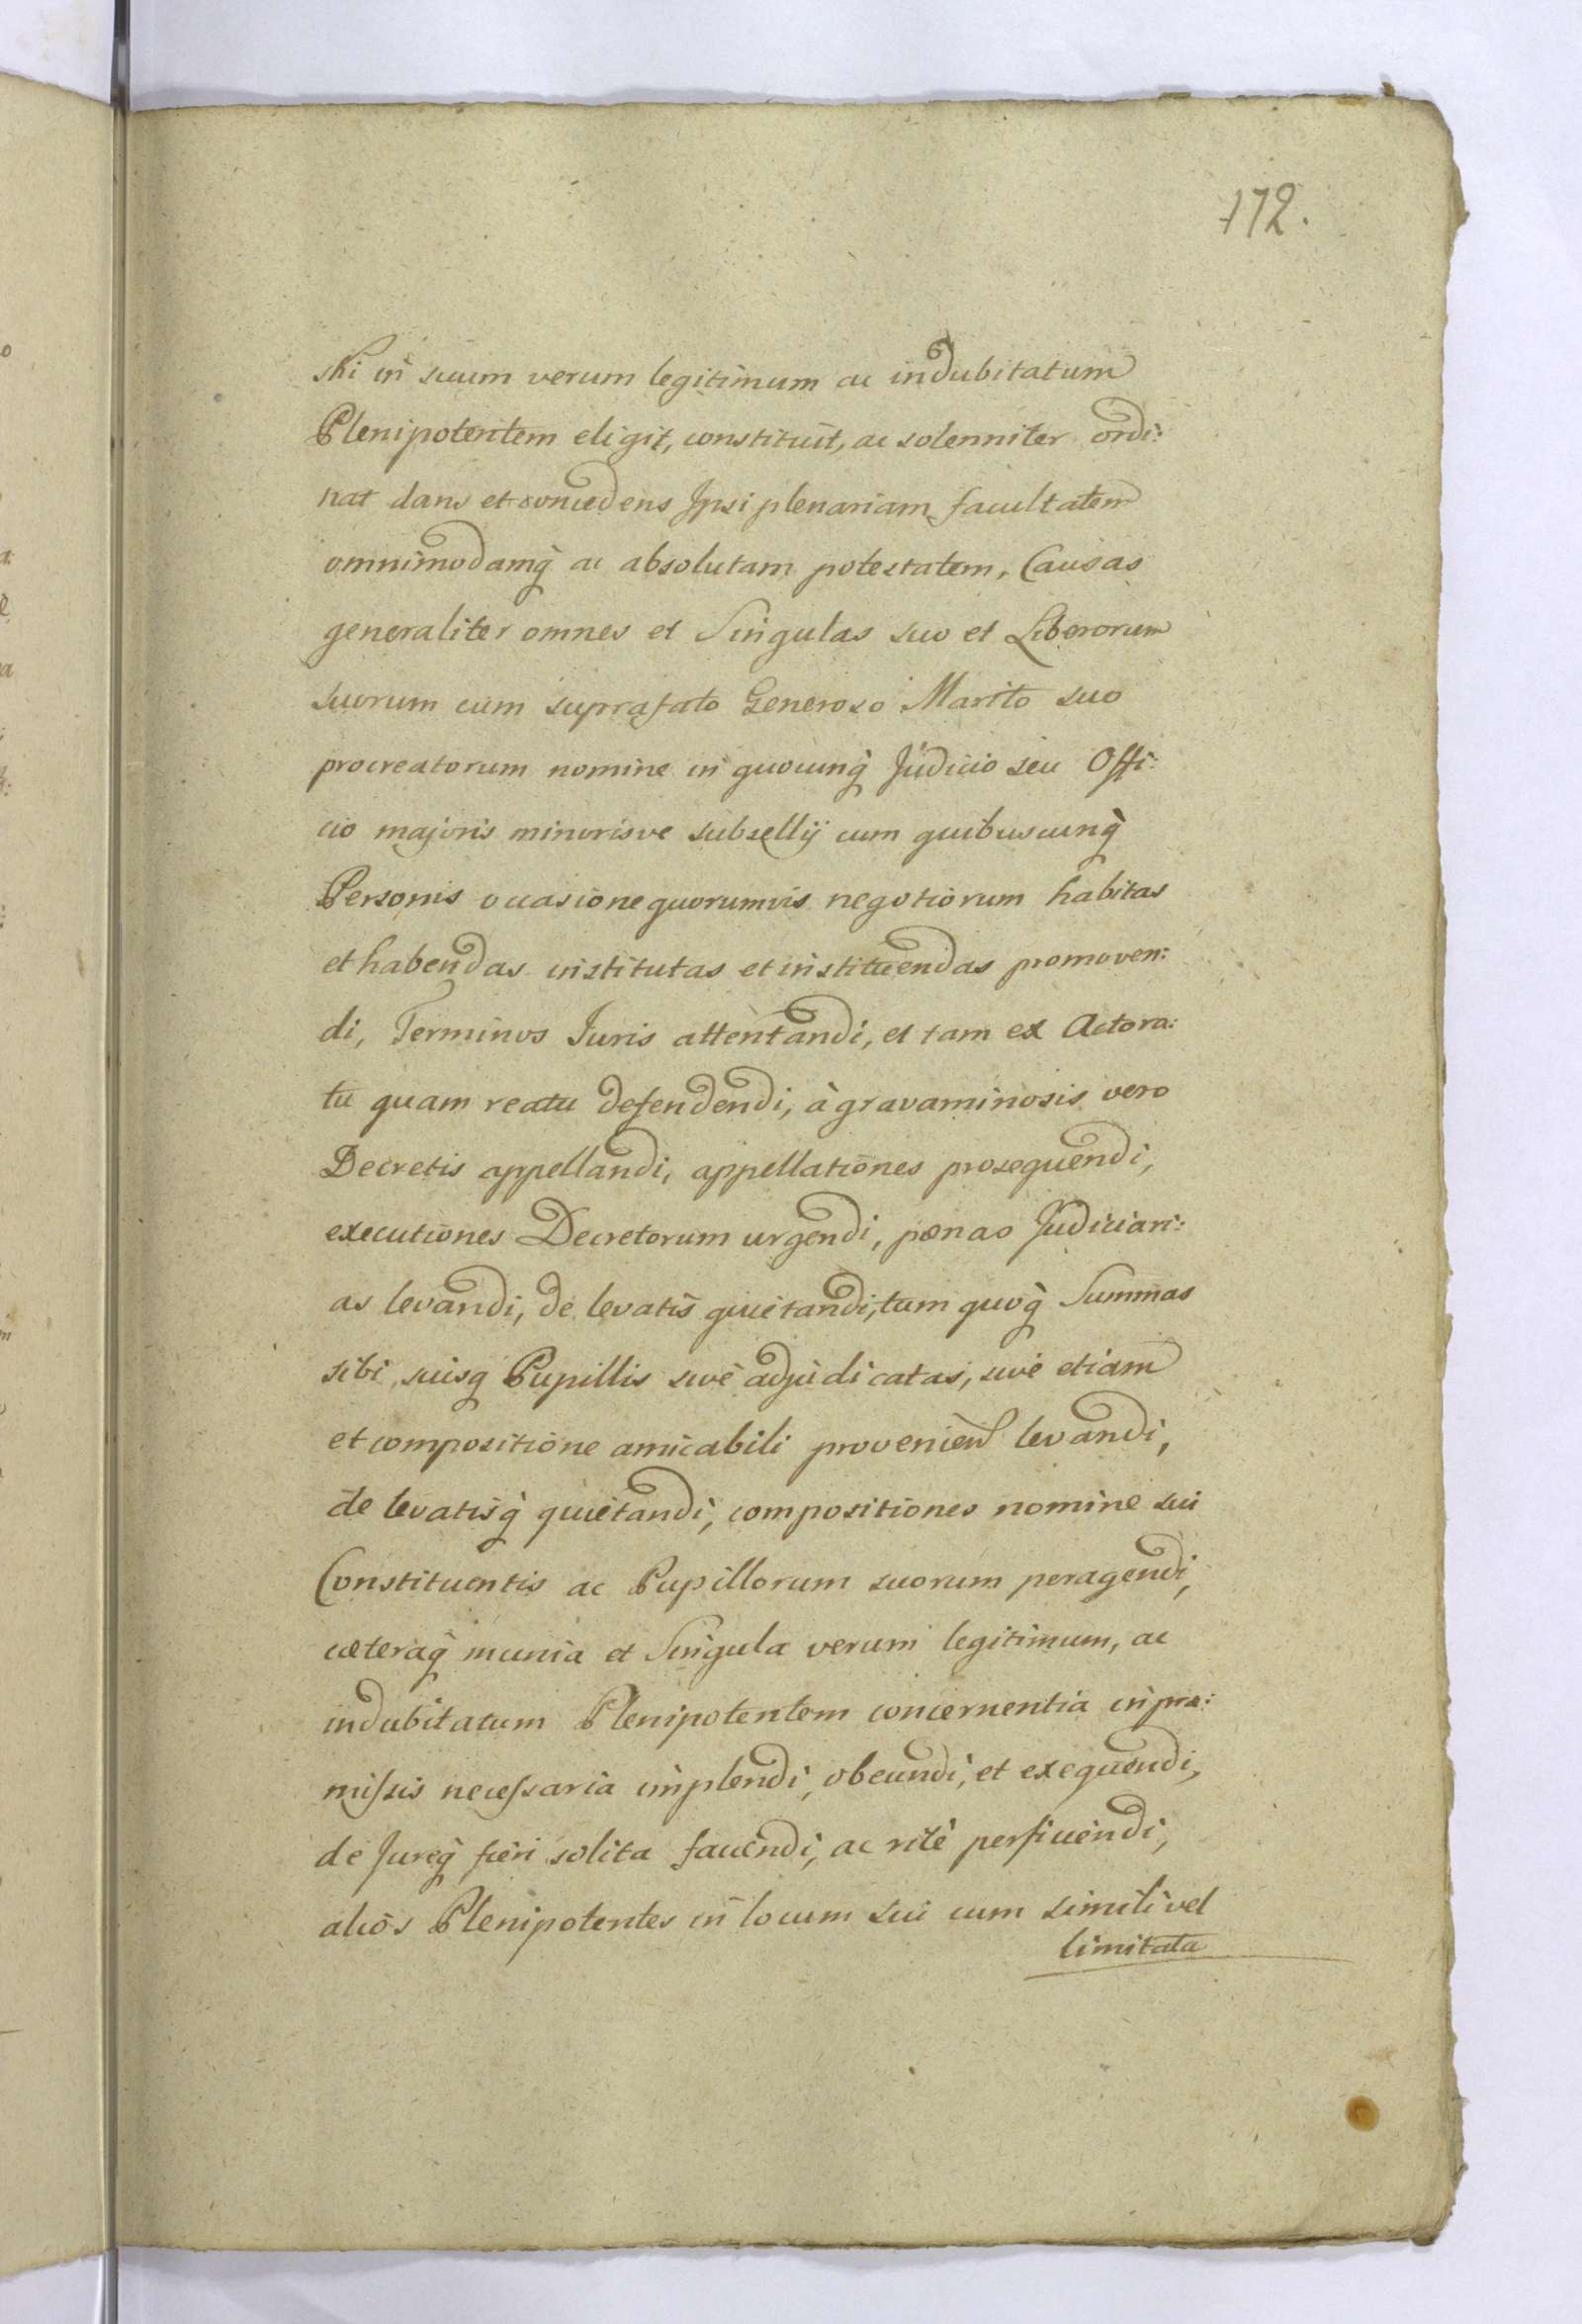 172.
ski in suum verum legitimum ac indubitatum
Plenipotentem eligit, constituit, ac solenniter ordi:
nat dans et concedens Ipsi plenariam facultatem
omnimodamq̀ ac absolutam potestatem, Causas
generaliter omnes et Singulas suo et Liberorum
suorum cum suprafato Generoso Marito suo
procreatorum nomine in quocunq̀ Judicio seu Offi:
cio majoris minorisve subsellij cum quibuscunq̀
Personis occasione quorumvis negotiorum habitas
et habendas institutas et instituendas promoven:
di, Terminos Iuris attentandi, et tam ex Actora:
tu quam reatu defendendi, à gravaminosis vero
Decretis appellandi, appellationes prosequendi,
executiones Decretorum urgendi, pœnas Judiciari:
as levandi, de levatis quietandi, tum quoq̀ Summas
sibi, suisq Pupillis sive adjudicatas, sive etiam
et compositione amicabili provenien levandi,
de levatisq̀ quietandi, compositiones nomine sui
Constituentis ac Pupillorum suorum peragendi,
cæteraq̀ munia et Singula verum legitimum, ac
indubitatum Plenipotentem concernentia in præ:
missis necessaria implendi, obeundi, et exequendi,
de Jureq̀ fieri solita faciendi, ac ritè perficiendi,
alios Plenipotentes in locum sui cum simili vel
limitata